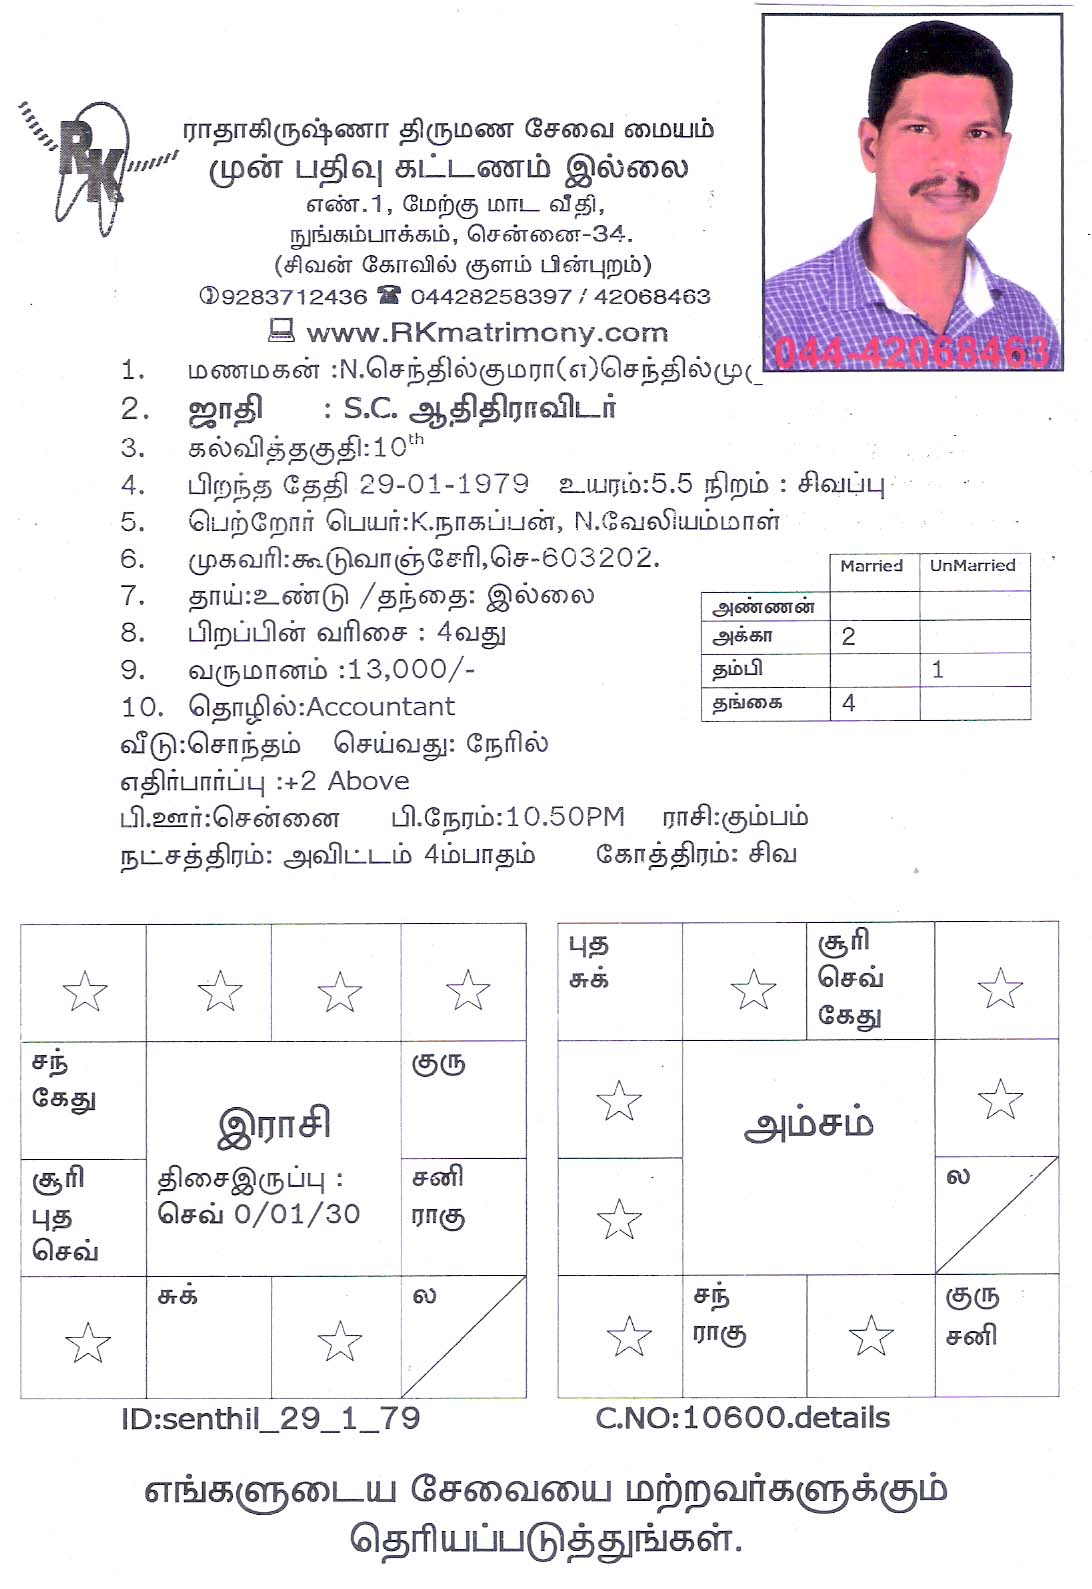 RK
ராதாகிருஷ்ணா திருமண சேவை மையம்
முன் பதிவு கட்டணம் இல்லை
எண்.1, மேற்கு மாட வீதி,
நுங்கம்பாக்கம், சென்னை-34.
(சிவன் கோவில் குளம் பின்புறம்)
9283712436 ☎ 04428258397 / 42068463
www.RKmatrimony.com
044-42068463
1. மணமகன் :N.செந்தில்குமரா(எ)செந்தில்மு
2. ஜாதி : S.C. ஆதிதிராவிடர்
3. கல்வித்தகுதி:10th
4. பிறந்த தேதி 29-01-1979 உயரம்:5.5 நிறம் : சிவப்பு
5. பெற்றோர் பெயர்:K.நாகப்பன், N.வேலியம்மாள்
6. முகவரி:கூடுவாஞ்சேரி,செ-603202.
7. தாய்:உண்டு /தந்தை: இல்லை
8. பிறப்பின் வரிசை : 4வது
9. வருமானம் :13,000/-
10. தொழில்:Accountant
Married UnMarried
அண்ணன்
அக்கா 2
தம்பி 1
தங்கை 4
வீடு:சொந்தம் செய்வது: நேரில்
எதிர்பார்ப்பு :+2 Above
பி.ஊர்:சென்னை பி.நேரம்:10.50PM ராசி:கும்பம்
நட்சத்திரம்: அவிட்டம் 4ம்பாதம் கோத்திரம்: சிவ
சந்
கேது
குரு
இராசி
திசைஇருப்பு :
செவ் 0/01/30
சூரி
புத
செவ்
சனி
ராகு
சுக்
ல
புத
சுக்
சூரி
செவ்
கேது
அம்சம்
ல
சந்
ராகு
குரு
சனி
ID:senthil_29_1_79 C.NO:10600.details
எங்களுடைய சேவையை மற்றவர்களுக்கும்
தெரியப்படுத்துங்கள்.